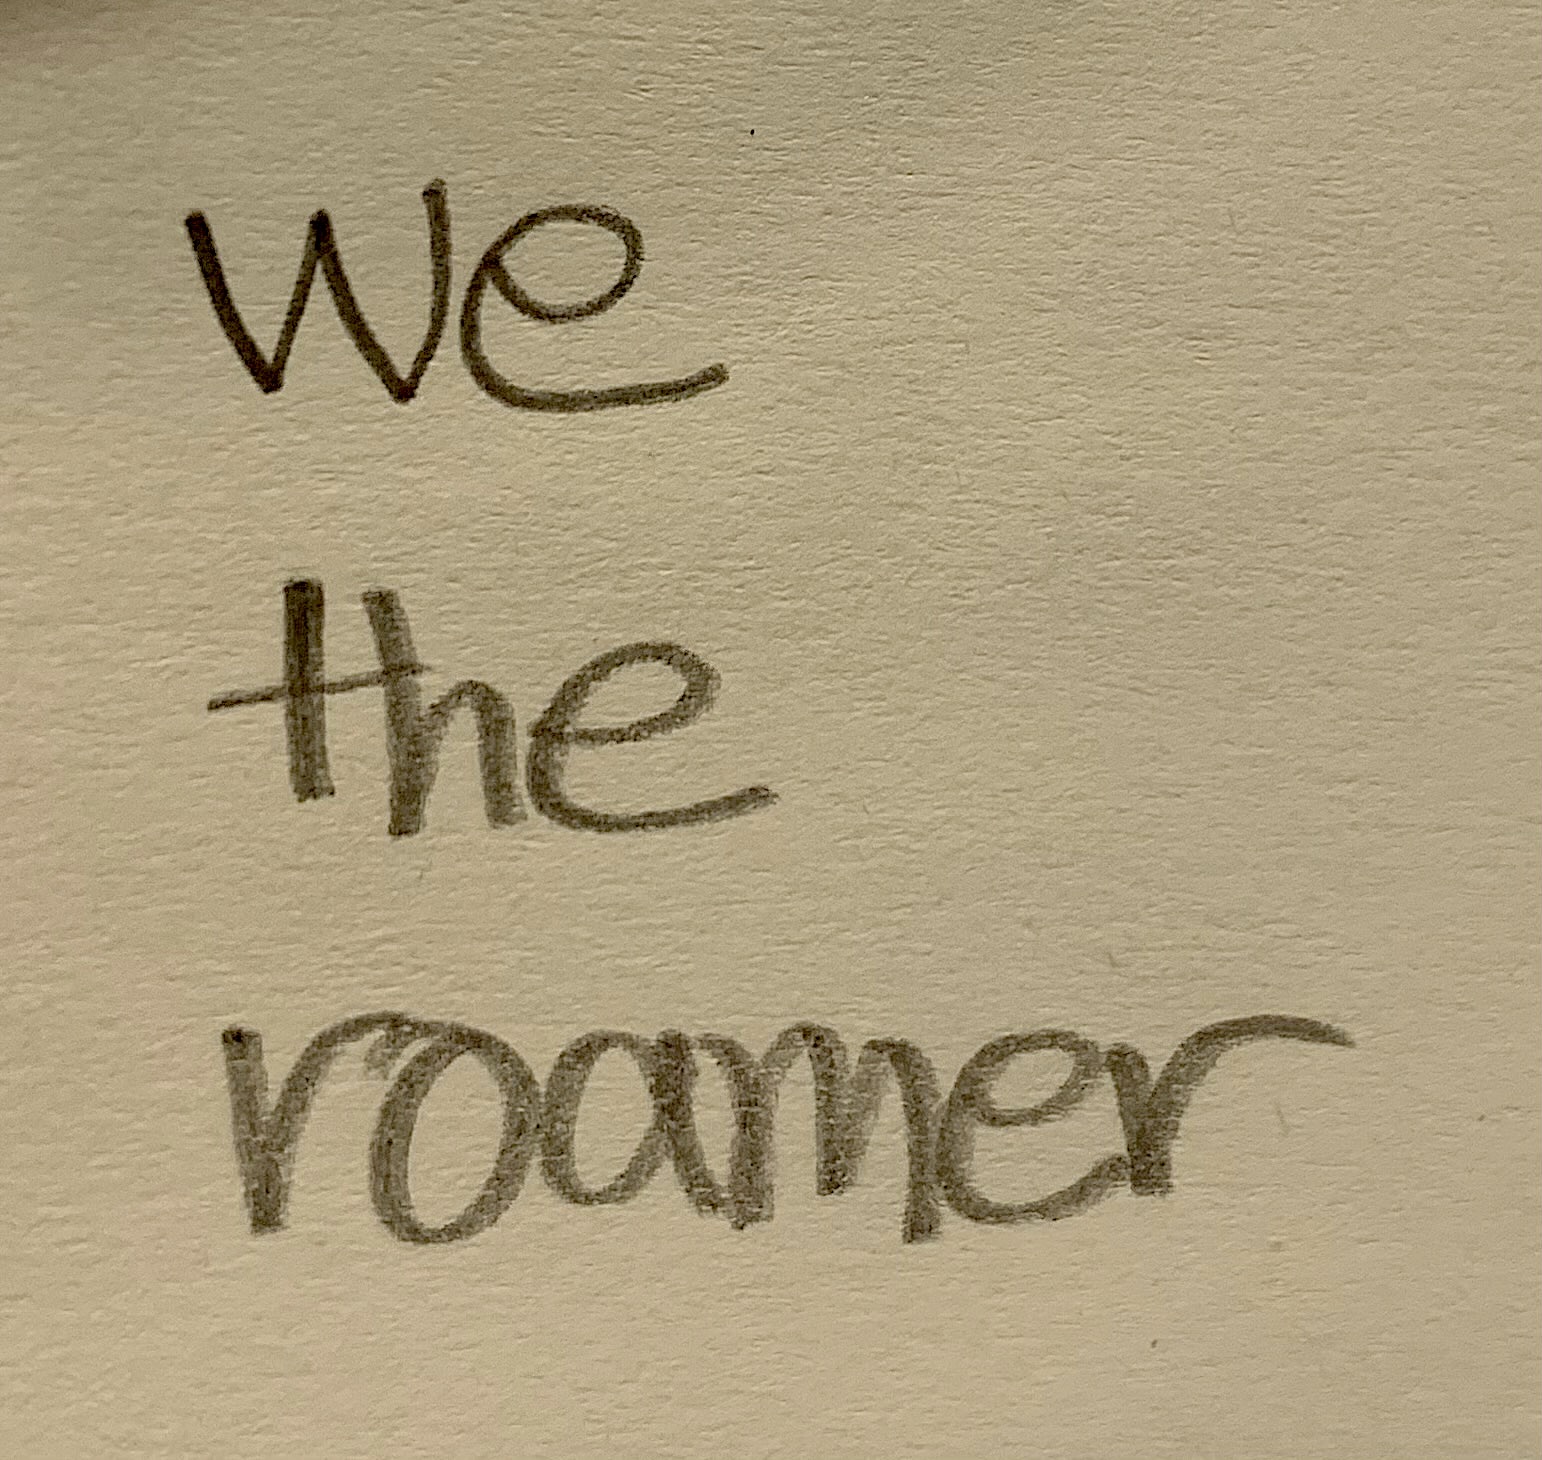 We
the
roamer